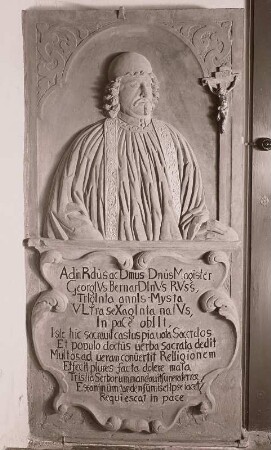 Adm Rdus ac Dmus Dnus Magister
GeorgIVs BernarDInVs RVss
TrIgInta annIs Mysta
VLtra seXagInta natVs,
In paCe obIIt.
Iste hic sacravit castus pia vota Sacerdos
Et populo doctus verba sacrata dedit
Multos ad veram convertit Relligionem
Effecit plures facta dolere mala
Tristia
ipse iacet
Requiescat in pace